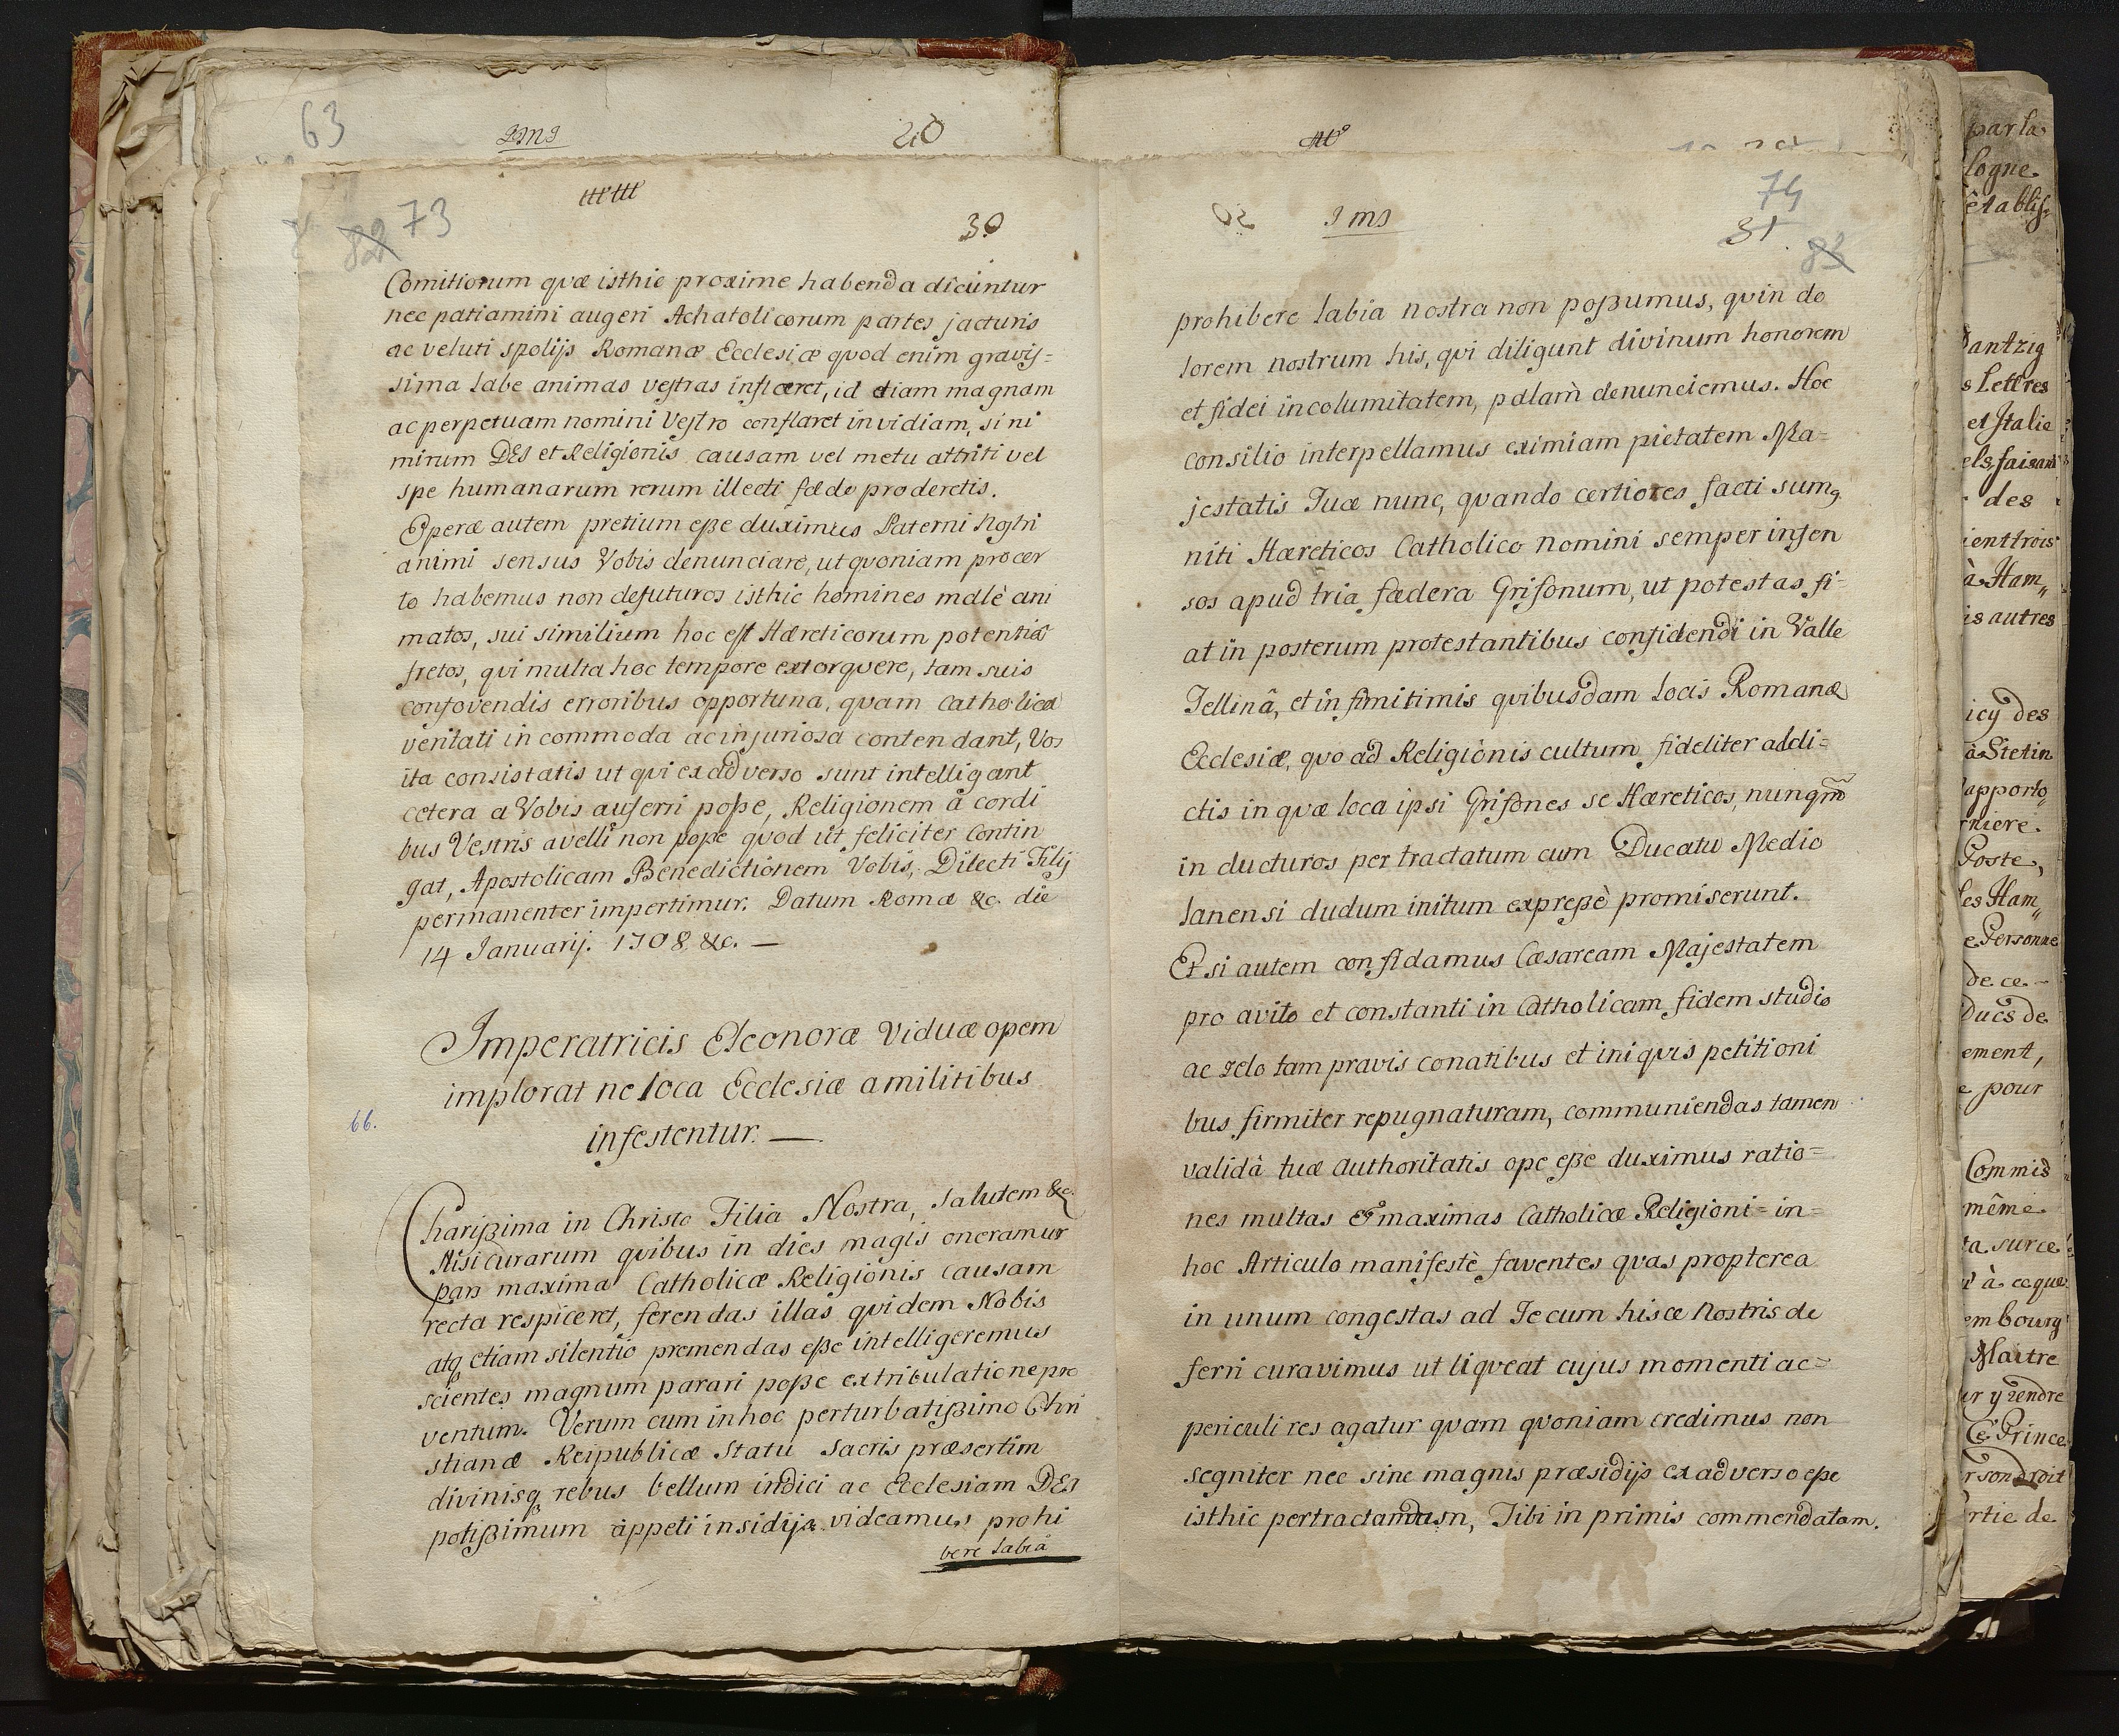 63
20
82 73
30
Comitiorum quæ isthic proxime habenda dicuntur
nec patiamini augeri Achatolicorum partes jacturis
ac veluti spolijs Romanæ Ecclesiæ quod enim gravis=
sima labe animas vestras inficeret, id etiam magnam
ac perpetuam nomini Vestro conflaret invidiam, si ni
mirum DEI et Religionis causam vel metu attriti vel
spe humanarum rerum illecti fæde proderetis.
Operæ autem pretium eße duximus Paterni Nostri
animi sensus Vobis denunciare, ut quoniam pro cer
to habemus non defuturos isthic homines malè ani
matos, sui similium hoc est Hæreticorum potentiâ
fretos, qui multa hoc tempore extorquere, tam suis
confovendis erroribus opportuna, quam Catholicæ
veritati incommoda ac injuriosa contendant, Vos
ita consistatis ut qui ex adverso sunt intelligant
cetera a Vobis auferri poße, Religionem à cordi
bus Vestris avelli non poße quod ut feliciter contin
gat, Apostolicam Benedictionem Vobis, Dilecti Filij
permanenter impertimur. Datum Romæ &c. die
14 Januarij. 1708 &c. —
Imperatricis Eleonoræ Viduæ opem
implorat ne loca Ecclesiæ a militibus
66.
infestentur. —
Charißima in Christo Filia Nostra, Salutem &c.
Nisi curarum quibus in dies magis oneramur
pars maxima Catholicæ Religionis causam
recta respiceret, ferendas illas quidem Nobis
atq etiam silentio premendas eße intelligeremus
scientes magnum parari poße ex tribulatione pro
ventum. Verum cum in hoc perturbatißimo Chri
stianæ Reipublicæ Statu sacris præsertim
divinisq rebus bellum indici ac Ecclesiam DEI
potißimum appeti insidijs videamus prohi
bere labia
74
31
83
prohibere labia nostra non poßumus, quin do
lorem nostrum his, qui diligunt divinum honorem
et fidei incolumitatem, palam denunciemus. Hoc
consilio interpellamus eximiam pietatem Ma=
jestatis Tuæ nunc, quando certiores facti sumq
niti Hæreticos Catholico nomini semper infen
sos apud tria fædera Grisonum, ut potestas fi=
at in posterum protestantibus consistendi in Valle
Tellinâ, et in finitimis quibusdam locis Romanæ
Ecclesiæ, quo ad Religionis cultum fideliter addi=
ctis in quæ loca ipsi Grisones se Hæreticos, nunqm̃
in ducturos per tractatum cum Ducatu Medio
lanensi dudum initum expreßè promiserunt.
Et si autem confidamus Cæsaream Majestatem
pro avito et constanti in Catholicam fidem studio
ac zelo tam pravis conatibus et iniquis petitioni
bus firmiter repugnaturam, communiendas tamen
validâ tuæ authoritatis ope eße duximus ratio=
nes multas & maximas Catholicæ Religioni in=
hoc Articulo manifestè faventes quas propterea
in unum congestas ad Te cum hisce Nostris de
ferri curavimus ut liqueat cujus momenti ac=
periculi res agatur quam quoniam credimus non
segniter nec sine magnis præsidijs ex adverso eße
isthic pertractandam, Tibi in primis commendatam.
par la
logne
établis
Dantzig
s Lettres
et Italie
els, faisant
des
ient trois
à Ham,,
is autres
icy des
à Stetin
apporto,,
rniere.
Poste,
les Ham,,
e Personne
de ce
Ducs de
ement,
e pour
Commis
même
ta surce
à ce que
embourg
Maitre
ur y rendre
Ce Prince
r son droit
rtie de